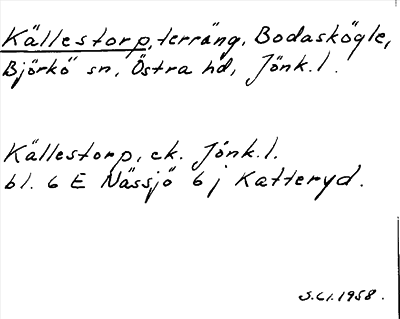 Källestorp, terräng, Bodaskögle,
Björkö sn, Östra hd, Jönk. l.
Källestorp, ek. Jönk. l.
bl. 6 E Nässjö 6 j Katteryd.
1958.